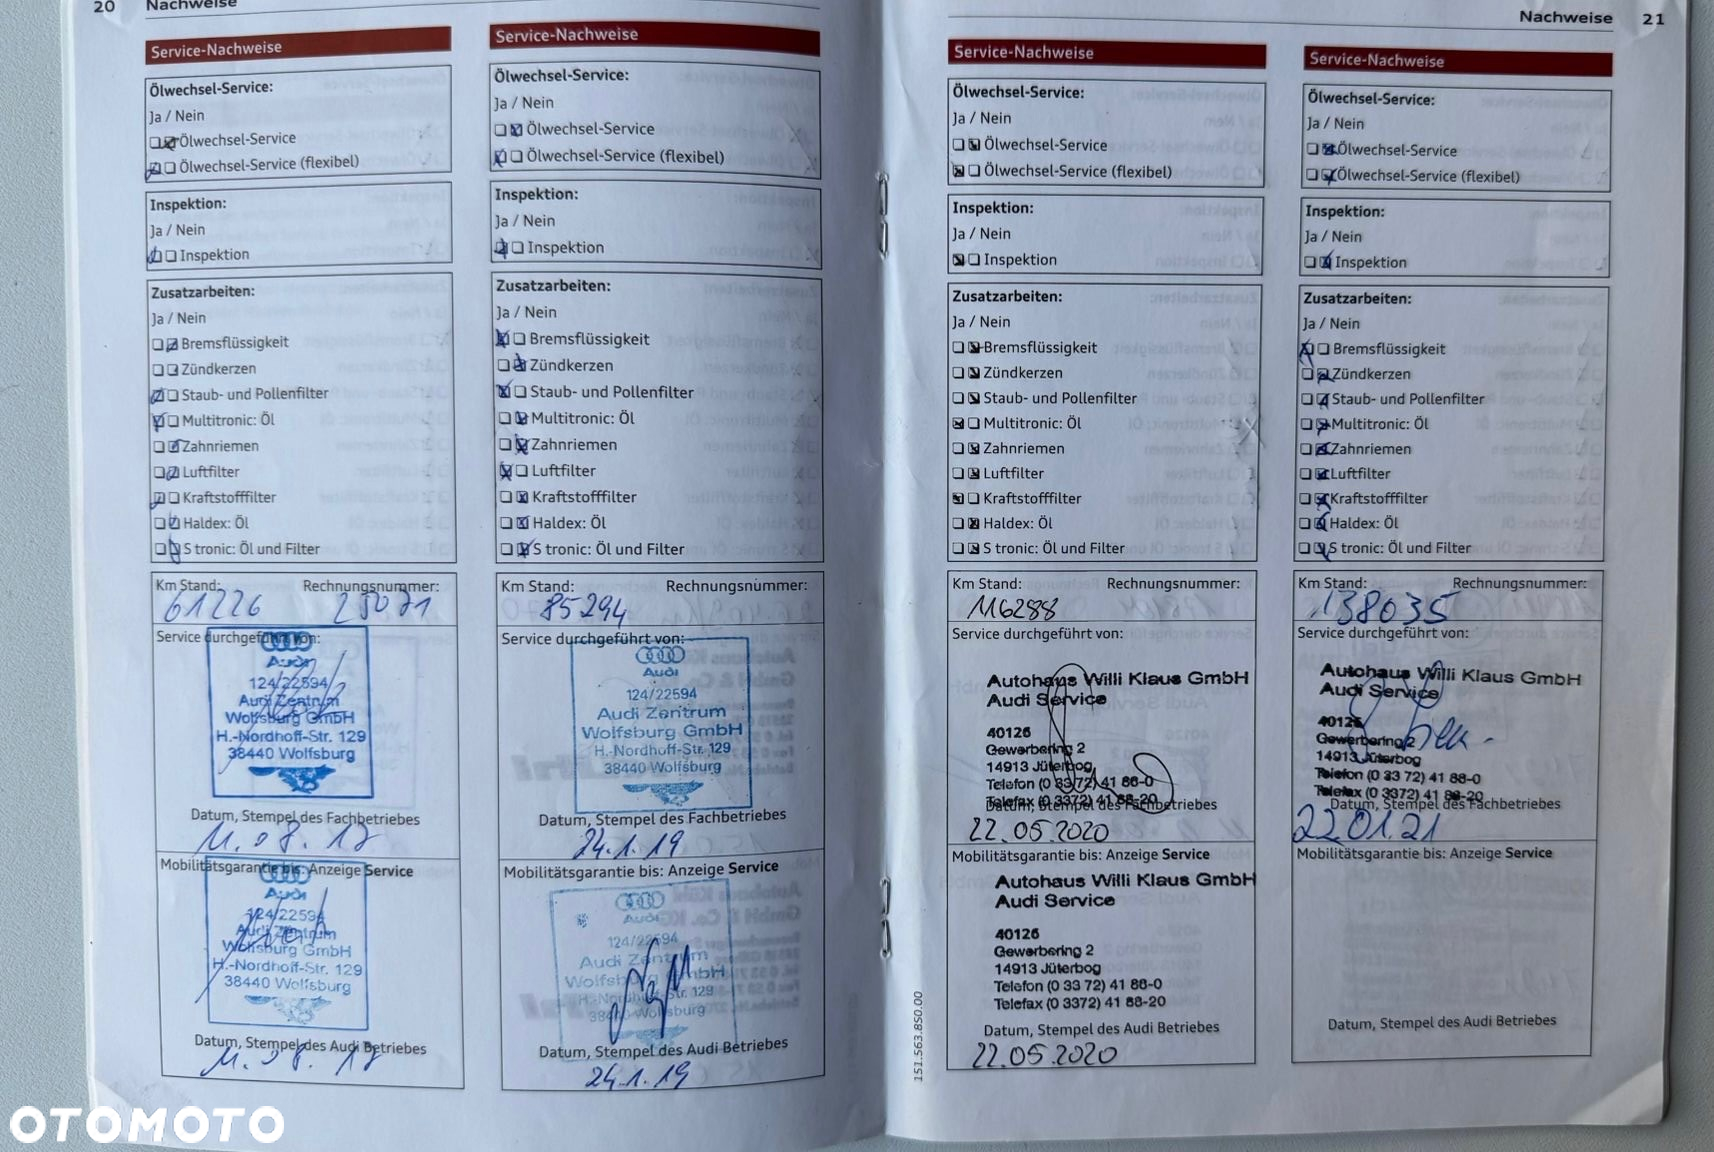 20 Nachweise
Service-Nachweise
Ölwechsel-Service:
Ja / Nein
Ölwechsel-Service
Ölwechsel-Service (flexibel)
Inspektion:
Ja / Nein
Inspektion
Zusatzarbeiten:
Ja / Nein
Bremsflüssigkeit
Zündkerzen
Staub- und Pollenfilter
Multitronic: Öl
Zahnriemen
Luftfilter
Kraftstofffilter
Haldex: Öl
S tronic: Öl und Filter
Km Stand: Rechnungsnummer:
61226 25071
Service durchgeführt von:
Audi
124/22594
Audi Zentrum
Wolfsburg GmbH
H.-Nordhoff-Str. 129
38440 Wolfsburg
Datum, Stempel des Fachbetriebes
11.08.17
Mobilitätsgarantie bis: Anzeige Service
Audi
124/22594
Audi Zentrum
Wolfsburg GmbH
H.-Nordhoff-Str. 129
38440 Wolfsburg
Datum, Stempel des Audi Betriebes
11.08.17
Service-Nachweise
Ölwechsel-Service:
Ja / Nein
Ölwechsel-Service
Ölwechsel-Service (flexibel)
Inspektion:
Ja / Nein
Inspektion
Zusatzarbeiten:
Ja / Nein
Bremsflüssigkeit
Zündkerzen
Staub- und Pollenfilter
Multitronic: Öl
Zahnriemen
Luftfilter
Kraftstofffilter
Haldex: Öl
S tronic: Öl und Filter
Km Stand: Rechnungsnummer:
85294
Service durchgeführt von:
Audi
124/22594
Audi Zentrum
Wolfsburg GmbH
H.-Nordhoff-Str. 129
38440 Wolfsburg
Datum, Stempel des Fachbetriebes
24.1.19
Mobilitätsgarantie bis: Anzeige Service
Audi
124/22594
Audi Zentrum
Wolfsburg GmbH
H.-Nordhoff-Str. 129
38440 Wolfsburg
Datum, Stempel des Audi Betriebes
24.1.19
Nachweise 21
Service-Nachweise
Ölwechsel-Service:
Ja / Nein
Ölwechsel-Service
Ölwechsel-Service (flexibel)
Inspektion:
Ja / Nein
Inspektion
Zusatzarbeiten:
Ja / Nein
Bremsflüssigkeit
Zündkerzen
Staub- und Pollenfilter
Multitronic: Öl
Zahnriemen
Luftfilter
Kraftstofffilter
Haldex: Öl
S tronic: Öl und Filter
Km Stand: Rechnungsnummer:
116288
Service durchgeführt von:
Autohaus Willi Klaus GmbH
Audi Service
40126
Gewerbering 2
14913 Jüterbog
Telefon (0 33 72) 41 88-0
Telefax (0 3372) 41 88-20
Datum, Stempel des Fachbetriebes
22.05.2020
Mobilitätsgarantie bis: Anzeige Service
Autohaus Willi Klaus GmbH
Audi Service
40126
Gewerbering 2
14913 Jüterbog
Telefon (0 33 72) 41 88-0
Telefax (0 3372) 41 88-20
Datum, Stempel des Audi Betriebes
22.05.2020
151.563.850.00
Service-Nachweise
Ölwechsel-Service:
Ja / Nein
Ölwechsel-Service
Ölwechsel-Service (flexibel)
Inspektion:
Ja / Nein
Inspektion
Zusatzarbeiten:
Ja / Nein
Bremsflüssigkeit
Zündkerzen
Staub- und Pollenfilter
Multitronic: Öl
Zahnriemen
Luftfilter
Kraftstofffilter
Haldex: Öl
S tronic: Öl und Filter
Km Stand: Rechnungsnummer:
138035
Service durchgeführt von:
Autohaus Willi Klaus GmbH
Audi Service
40126
Gewerbering 2
14913 Jüterbog
Telefon (0 33 72) 41 88-0
Telefax (0 3372) 41 88-20
Datum, Stempel des Fachbetriebes
22.01.21
Mobilitätsgarantie bis: Anzeige Service
Datum, Stempel des Audi Betriebes
OTOMOTO